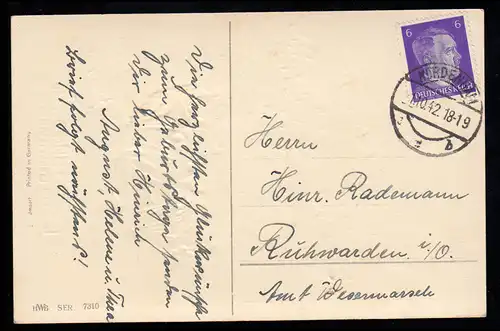 Die herzlichsten Glückwünsche
zum Geburtstage senden
Dir lieber Heinrich
August Helene u. Thea
Brief folgt nächstens!
Import Printed in Germany
HWB SER 7310
6 6
DEUTSCHES REICH
NORDENHAM
10.42.18-19
b
Herrn
Hinr. Rademann
Ruhwarden i/O.
Amt Wesermarsch